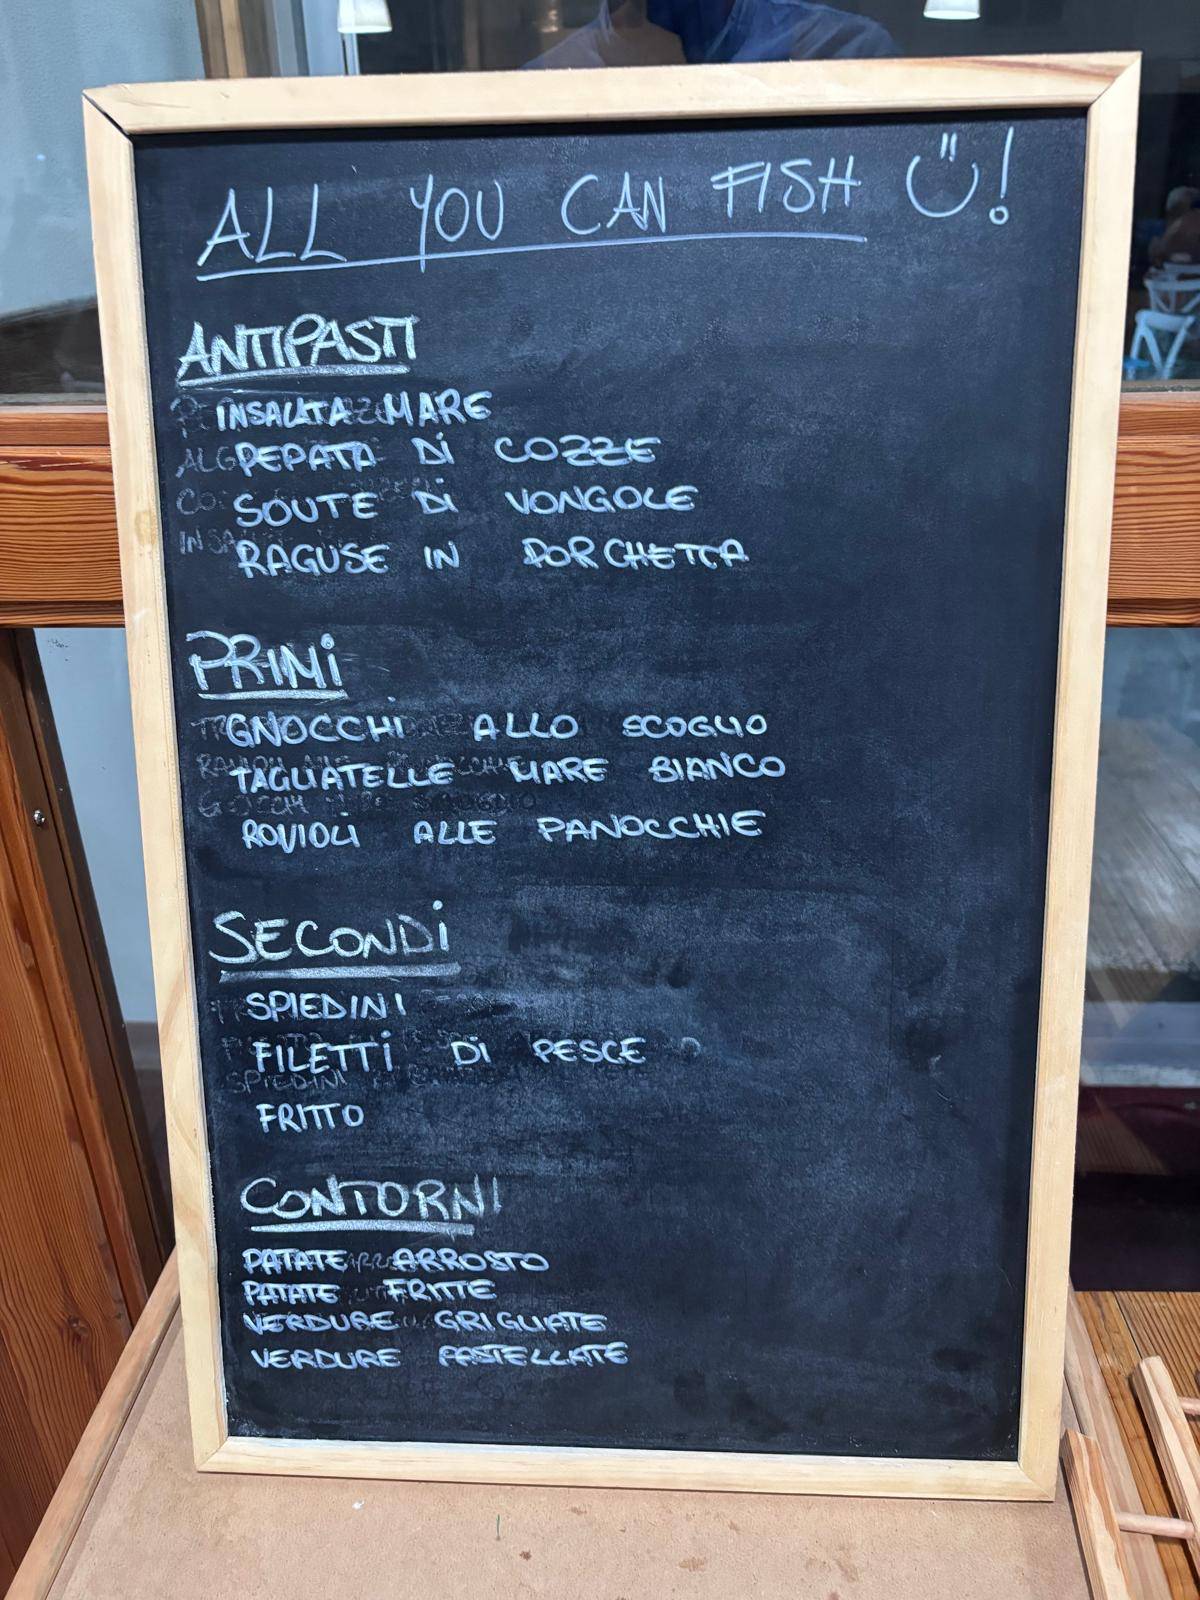 ALL YOU CAN FISH !
ANTIPASTI
INSALATA MARE
PEPATA DI COZZE
SOUTE DI VONGOLE
RAGUSE IN PORCHETTA
PRIMI
GNOCCHI ALLO SCOGLIO
TAGLIATELLE MARE BIANCO
ROVIOLI ALLE PANOCCHIE
SECONDI
SPIEDINI
FILETTI DI PESCE
SPIEDINI
FRITTO
CONTORNI
PATATE ARROSTO
PATATE FRITTE
VERDURE GRIGLIATE
VERDURE PASTELLATE